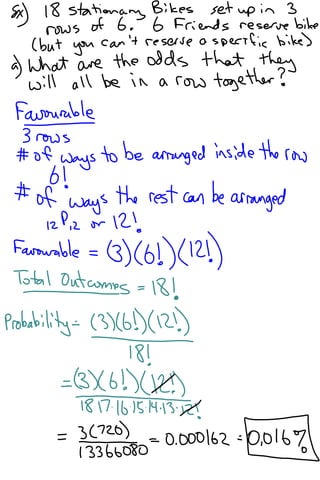 Ex) 18 stationary Bikes set up in 3
rows of 6. 6 Friends reserve bike
(but you can't reserve a specific bike)
a) What are the odds that they
will all be in a row together?
Favourable
3 rows
# of ways to be arranged inside the row
6!
# of ways the rest can be arranged
12P12 or 12!
Favourable = (3)(6!)(12!)
Total Outcomes = 18!
Probability = (3)(6!)(12!)
18!
= (3)(6!)(12!)
18·17·16·15·14·13·12!
= 3(720)
13366080 = 0.000162 = 0.016%